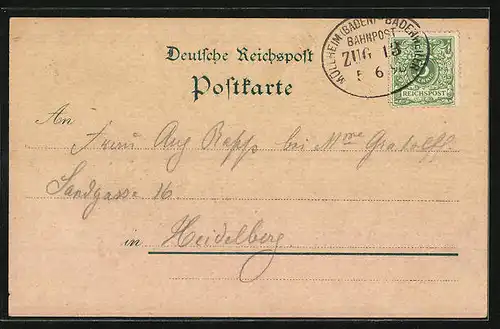 MÜLLHEIM (BADEN) - BADENWEILER
BAHNPOST
ZUG 13
5 6
5
REICHSPOST
Deutsche Reichspost
Postkarte
An
Frau Aug Rapps bei Mme
Sandgasse 16
in Heidelberg